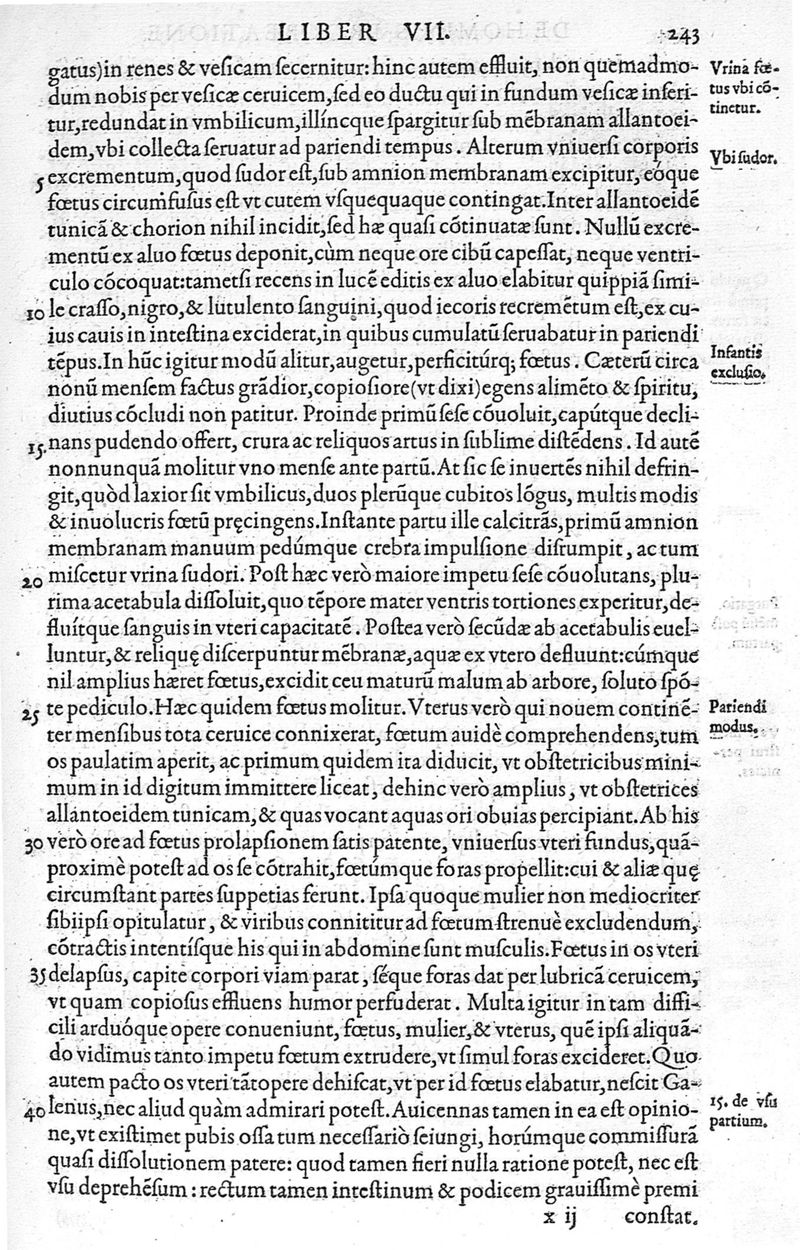 LIBER VII. 243
gatus)in renes & veſicam ſecernitur: hinc autem effluit, non quemadmo-
dum nobis per veſicæ ceruicem,ſed eo ductu qui in fundum veſicæ inſeri-
tur,redundat in vmbilicum,illíncque ſpargitur ſub mēbranam allantoei-
dem,vbi collecta ſeruatur ad pariendi tempus. Alterum vniuerſi corporis
5 excrementum,quod ſudor eſt,ſub amnion membranam excipitur, eóque
fœtus circumfuſus eſt vt cutem vſquequaque contingat.Inter allantoeidē
tunicā & chorion nihil incidit,ſed hæ quaſi cōtinuatæ ſunt. Nullū excre-
mentū ex aluo fœtus deponit,cùm neque ore cibū capeſſat, neque ventri-
culo cōcoquat:tametſi recens in lucē editis ex aluo elabitur quippiā ſimi-
10 le craſſo,nigro,& lutulento ſanguini,quod iecoris recremētum eſt,ex cu-
ius cauis in inteſtina exciderat,in quibus cumulatū ſeruabatur in pariendi
tēpus.In hūc igitur modū alitur,augetur,perficitúrq; fœtus. Cæterū circa
nonū menſem factus grādior,copioſiore(vt dixi)egens alimēto & ſpiritu,
diutius cōcludi non patitur. Proinde primū ſeſe cōuoluit,capútque decli-
15. nans pudendo offert, crura ac reliquos artus in ſublime diſtēdens. Id autē
nonnunquā molitur vno menſe ante partū.At ſic ſe inuertēs nihil defrin-
git,quòd laxior ſit vmbilicus,duos plerūque cubitos lōgus, multis modis
& inuolucris fœtū pręcingens.Inſtante partu ille calcitrās,primū amnion
membranam manuum pedúmque crebra impulſione diſrumpit, ac tum
20 miſcetur vrina ſudori. Poſt hæc verò maiore impetu ſeſe cōuolutans, plu-
rima acetabula diſſoluit,quo tēpore mater ventris tortiones experitur,de-
fluítque ſanguis in vteri capacitatē. Poſtea verò ſecūdæ ab acetabulis euel-
luntur,& reliquę diſcerpuntur mēbranæ,aquæ ex vtero defluunt:cúmque
nil amplius hæret fœtus,excidit ceu maturū malum ab arbore, ſoluto ſpō-
25 te pediculo.Hæc quidem fœtus molitur.Vterus verò qui nouem continē-
ter menſibus tota ceruice connixerat, fœtum auidè comprehendens,tum
os paulatim aperit, ac primum quidem ita diducit, vt obſtetricibus mini-
mum in id digitum immittere liceat, dehinc verò amplius, vt obſtetrices
allantoeidem tunicam,& quas vocant aquas ori obuias percipiant.Ab his
30 verò ore ad fœtus prolapſionem ſatis patente, vniuerſus vteri fundus,quā-
proximè poteſt ad os ſe cōtrahit,fœtúmque foras propellit:cui & aliæ quę
circumſtant partes ſuppetias ferunt. Ipſa quoque mulier non mediocriter
ſibiipſi opitulatur, & viribus connititur ad fœtum ſtrenuè excludendum,
cōtractis intentíſque his qui in abdomine ſunt muſculis.Fœtus in os vteri
35 delapſus, capite corpori viam parat, ſéque foras dat per lubricā ceruicem,
vt quam copioſus effluens humor perfuderat. Multa igitur in tam diffi-
cili arduóque opere conueniunt, fœtus, mulier,& vterus, quē ipſi aliquā-
do vidimus tanto impetu fœtum extrudere,vt ſimul foras excideret.Quo
autem pacto os vteri tātopere dehiſcat,vt per id fœtus elabatur,neſcit Ga-
40 lenus,nec aliud quàm admirari poteſt.Auicennas tamen in ea eſt opinio-
ne,vt exiſtimet pubis oſſa tum neceſſariò ſeiungi, horúmque commiſſurā
quaſi diſſolutionem patere: quod tamen fieri nulla ratione poteſt, nec eſt
vſu deprehēſum: rectum tamen inteſtinum & podicem grauiſſimè premi
x ij conſtat.
Vrina fœ-
tus vbi cō-
tinetur.
Vbi ſudor.
Infantis
excluſio.
Pariendi
modus.
15. de vſu
partium.